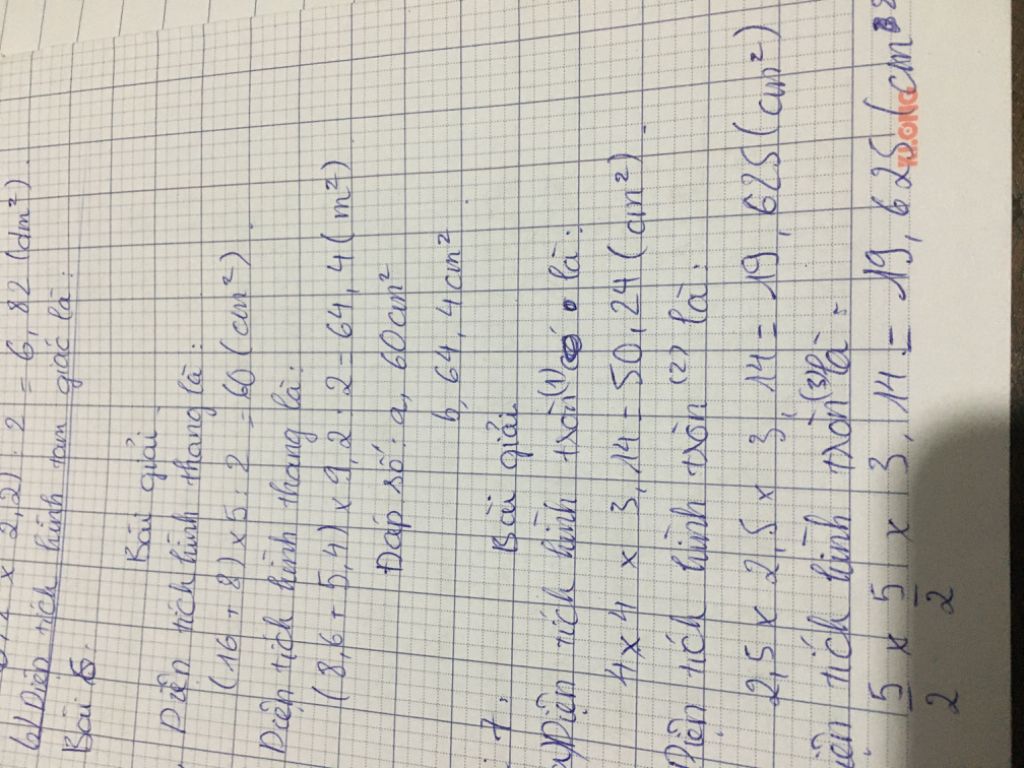 x 2,2) : 2 = 6,82 (dm²).
b/ Diện tích hình tam giác là:
Bài 5.
Bài giải
Diện tích hình thang là:
(16 + 8) x 5 : 2 = 60 (cm²)
Diện tích hình thang là:
(8,6 + 5,4) x 9,2 : 2 = 64,4 (m²)
Đáp số: a, 60cm²
b, 64,4cm²
7. Bài giải
a)Diện tích hình tròn (1) là:
4 x 4 x 3,14 = 50,24 (cm²)
Diện tích hình tròn (2) là:
2,5 x 2,5 x 3,14 = 19,625 (cm²)
tích hình tròn (3) là:
5/2 x 5/2 x 3,14 = 19,625 (cm²